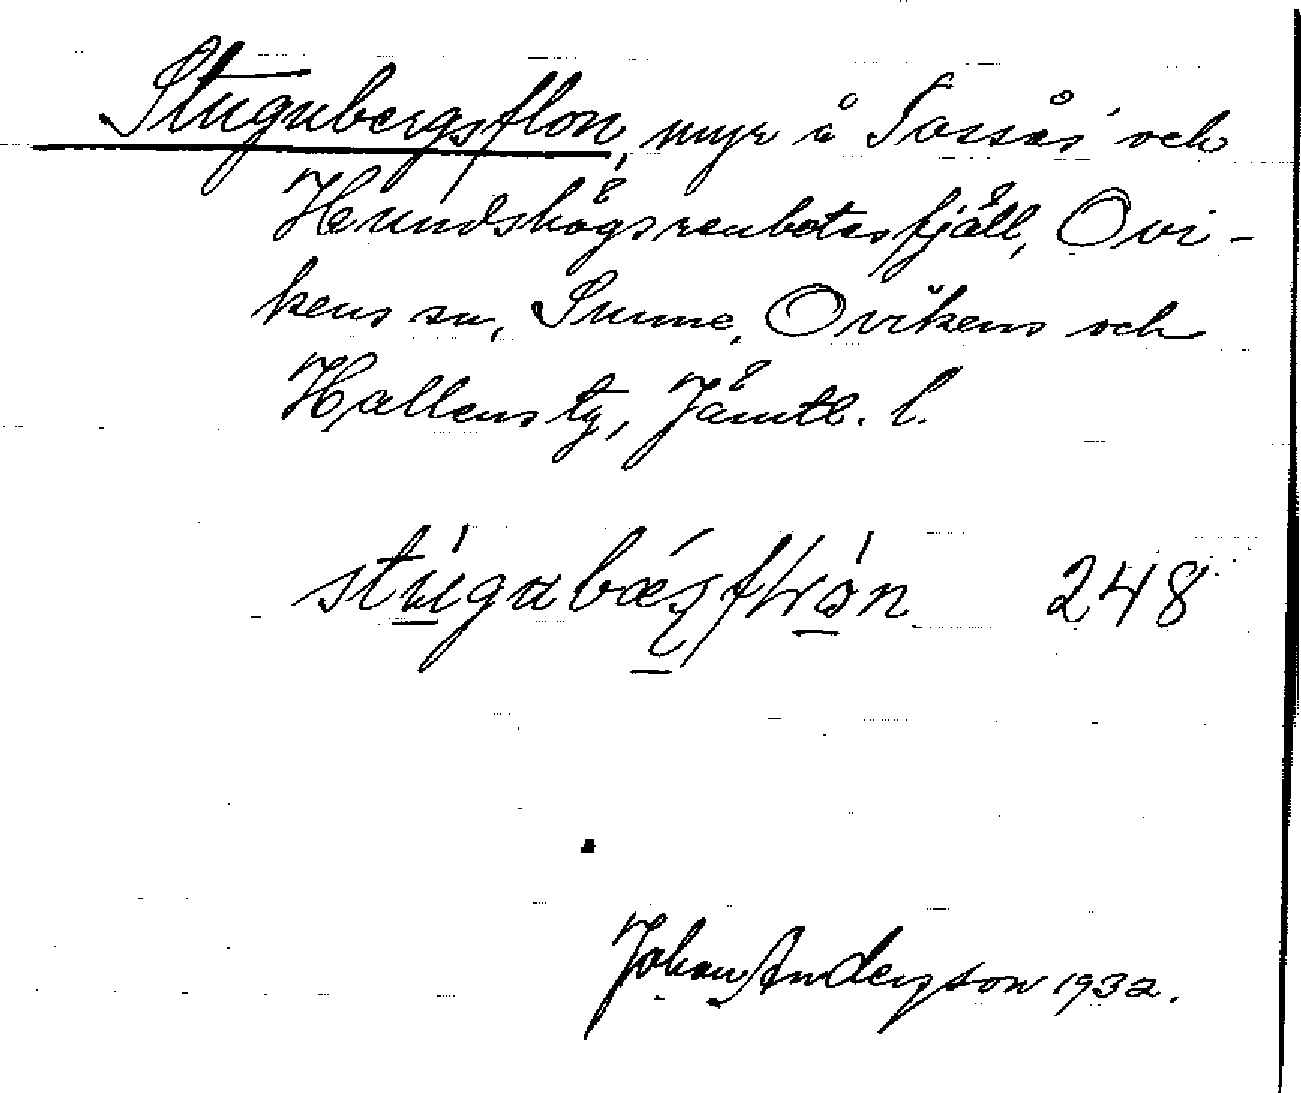 Stugubergsflon, myr å Tossås och
Hundshögsrenbetesfjäll, Ovi-
kens sn, Sunne, Ovikens och
Hallens tg, Jämtl. l.
248
Johan Anderzson 1932.